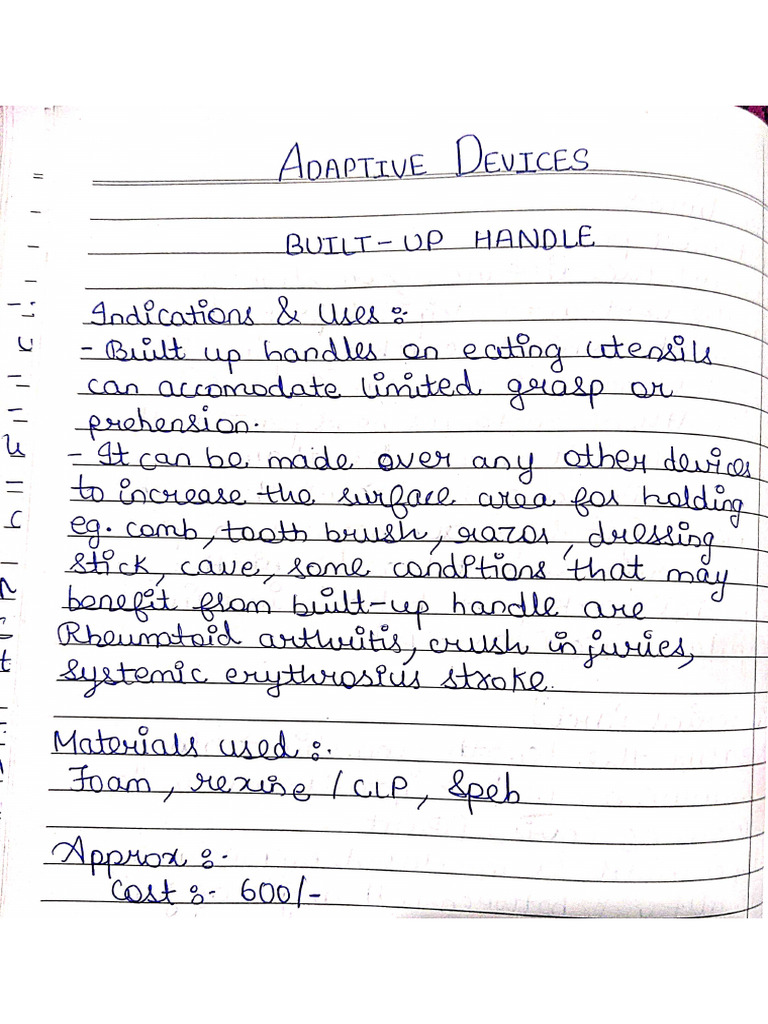 ADAPTIVE DEVICES
BUILT-UP HANDLE
Indications & Uses :-
- Built up handles on eating utensils
can accomodate limited grasp or
prehension.
- It can be made over any other devices
to increase the surface area for holding
eg. comb, tooth brush, razor, dressing
stick, cave, some conditions that may
benefit from built-up handle are
Rheumatoid arthritis, crush injuries,
systemic erythrosius stroke.
Materials used :-
Foam, rexine /
Approx :-
Cost :- 600/-